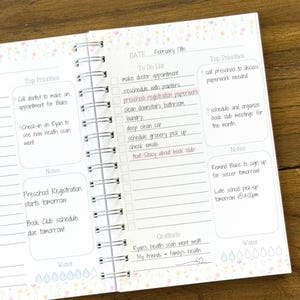 Top Priorities
Call dentist to make an
appointment for Blake.
Check-in on Ryan to
see how health scan
went
Notes
Preschool Registration
starts tomorrow!
Book Club schedule
due tomorrow!
Water
DATE February 17th
To Do List
make doctor appointment
reschedule with painters
preschool registration paperwork
clean downstairs bathroom
laundry
deep clean car
schedule grocery pick up
check emails
text Stacy about book club
Gratitude
Ryan's health scan went well!
My friends + family's health
Top Priorities
call preschool to discuss
paperwork needed
schedule and organize
book club meetings for
the year
Notes
Remind Blake to sign up
for soccer tomorrow!
Late school pick up
tomorrow @4:00pm
Water